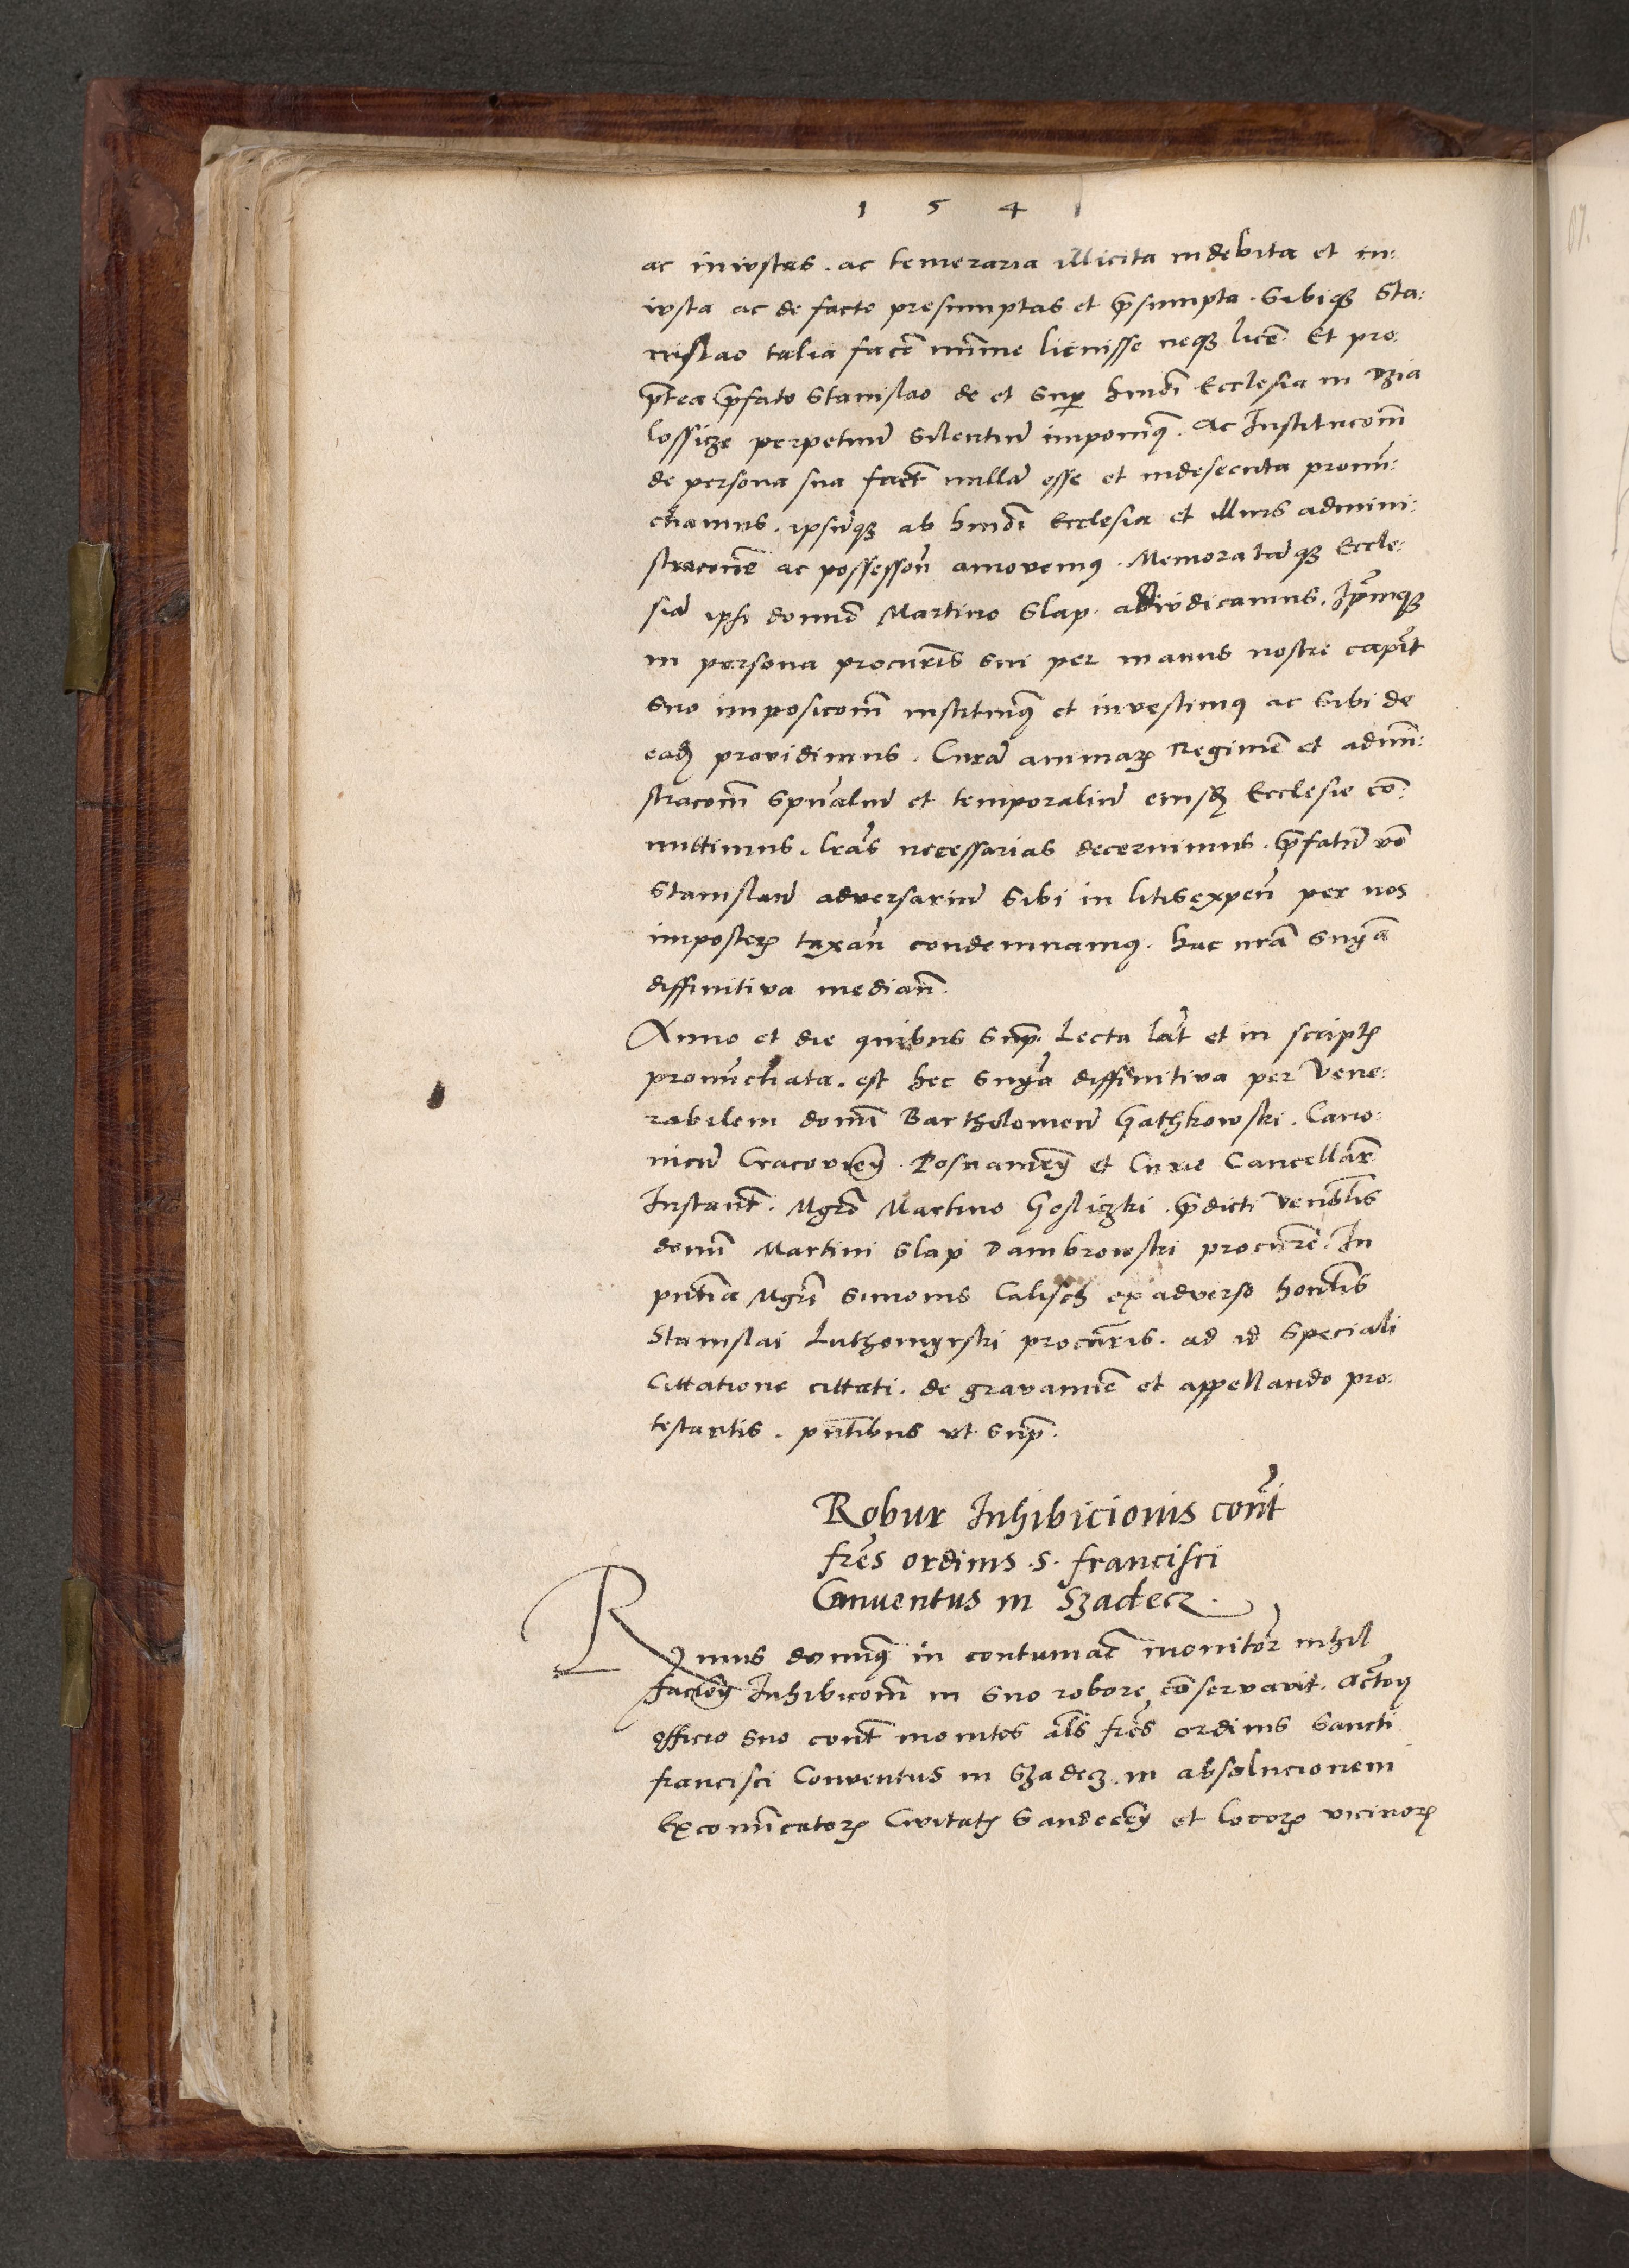 1 5 4 1
ac iniustas . ac temeraria illicita indebita et in:
iusta ac de facto presumptas et p̄sumpta . Sibiq3 Sta:
nislao talia facē minime licuisse neq3 licē Et pro
p̄tea p̄fato Stanislao de et Sup hmōi Ecclesia in
lossicze perpetuū Silentiū imponimꝰ . Ac Institucom̄
de persona sua fact̄ nullā esse et indesecuta pronū:
ctiamus . ipsūq3 ab hmōi Ecclesia et illius admini:
stracōne ac possession̄ amovemꝰ . Memoratāq3 Eccle:
siā ipsi domīo Martino Slap . adiudicamus . Ip̄umq3
in persona procur̄is sui per manus nostre capit̄
Suo imposicom̄ instituimꝰ et investimꝰ ac Sibi de
eadē providimus . Curā animaꝝ Regimē et admīni:
stracom̄ Spūaliū et temporaliū eiusdē Ecclesie cō:
mittimus . l̄ras necessarias decernimus . p̄fatū vō
Stanislaū adversariū Sibi in litisexpen̄ per nos
imposteꝝ taxan̄ condemnamꝰ . hac nr̄a Snīa
diffinitiva median̄ .
Anno et die quibus Sup̄ . Lecta lat̄ et in scriptꝭ
pronūctiata . est hec Snīa diffinitiva per Vene:
rabilem domī Bartholomeū Gathkowski . Cano:
nicū Cracovieñ . Posnanieñ et Curie Cancellar̄
Instant̄ . Mgrō Martino Gosliczki . p̄dicti venb̄lis
domī Martini Slap Dambrowski procur̄e . In
pn̄tia Mgrī Simonis Calisch ex adverso hon̄lis
Stanislai Luthomyrski procur̄is . ad id Speciali
Cittatione cittati . de gravamīe et appellando pro:
testantis . pn̄tibus ut Sup̄ .
Robur Inhibicionis cont̄
fr̄es ordinis . s . francisci
Conventus in Szadecz .
R mus domīꝰ in contumac̄ monitoꝝ nihil
facieñ Inhibicom̄ in Suo robore cōservavit . Act̄oꝝ
officio Suo cont̄ monitos al̄s fr̄es ordinis Sancti
francisci Conventus in Szadecz . in absolucionem
Excomīcatoꝝ Civitatꝭ Sandecieñ et locoꝝ vicinoꝝ